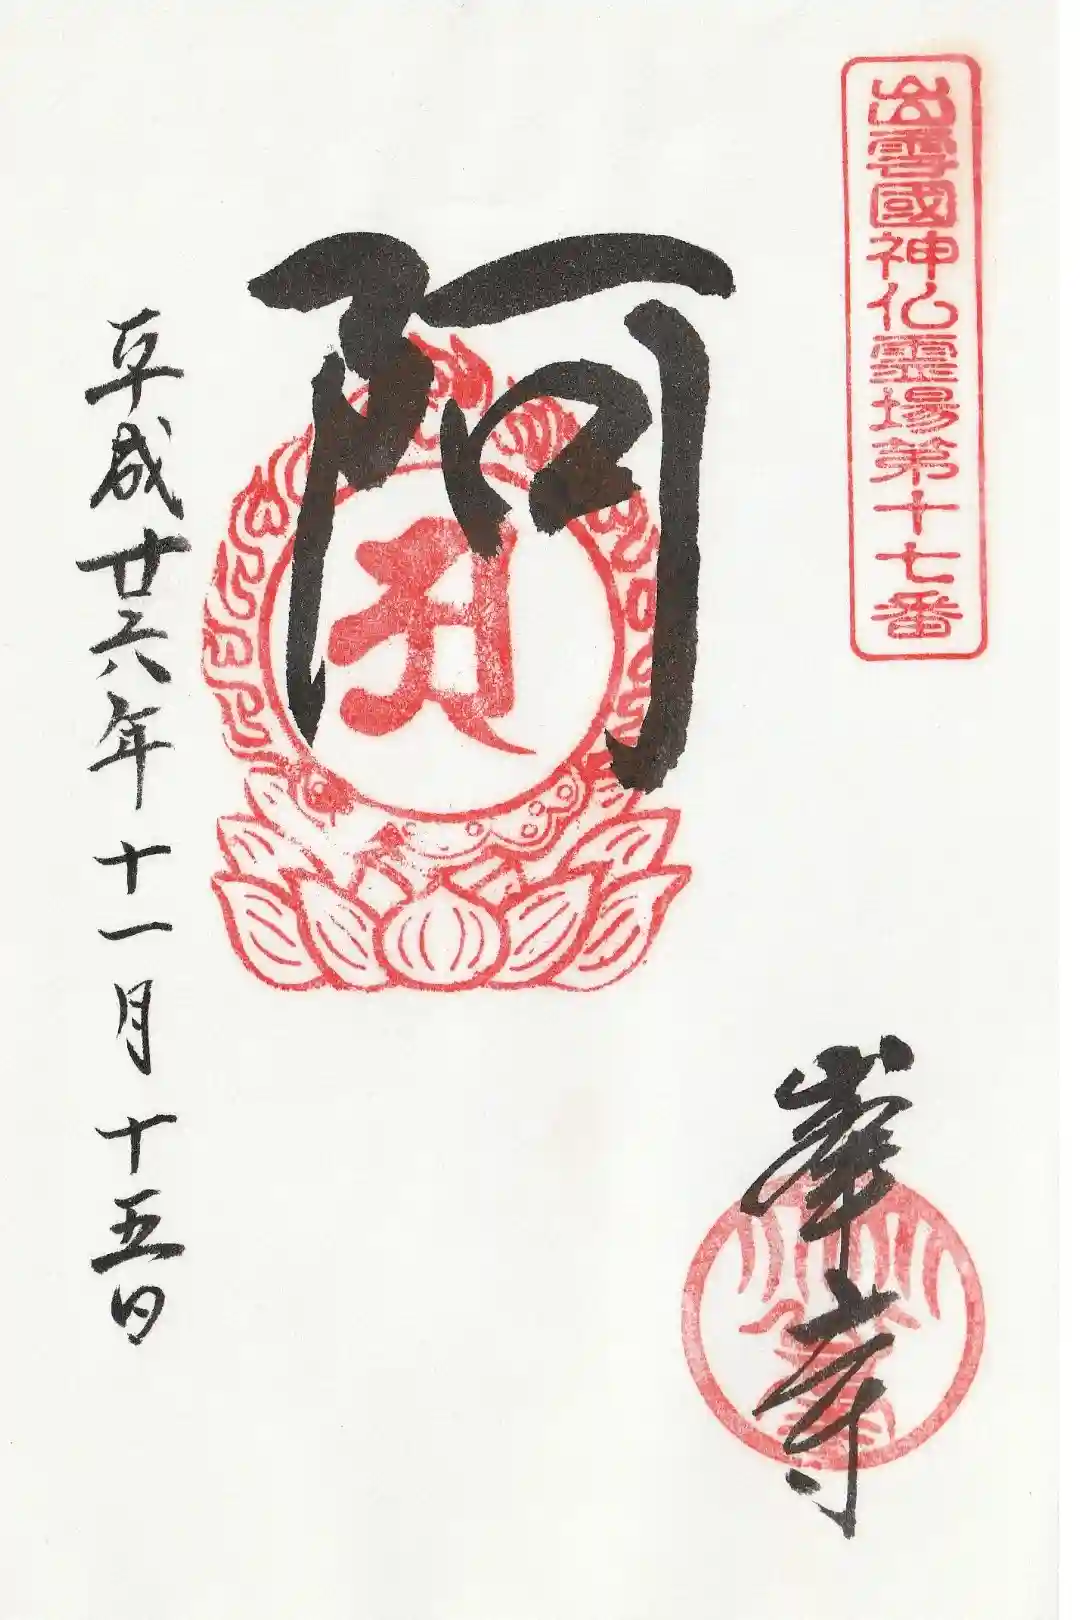 出雲國神仏霊場第十七番
峯寺
阿
平成廿六年十一月十五日